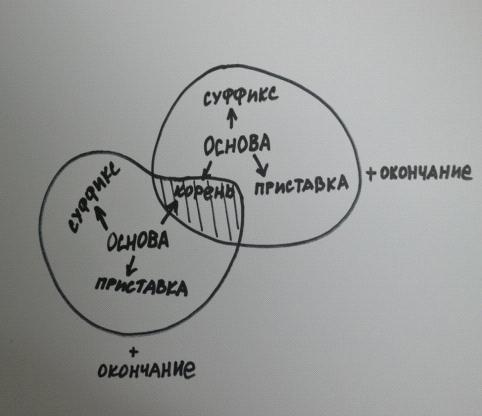 СУФФИКС
ОСНОВА
КОРЕНЬ
ПРИСТАВКА
+ ОКОНЧАНИЕ
СУФФИКС
ОСНОВА
ПРИСТАВКА
+
ОКОНЧАНИЕ